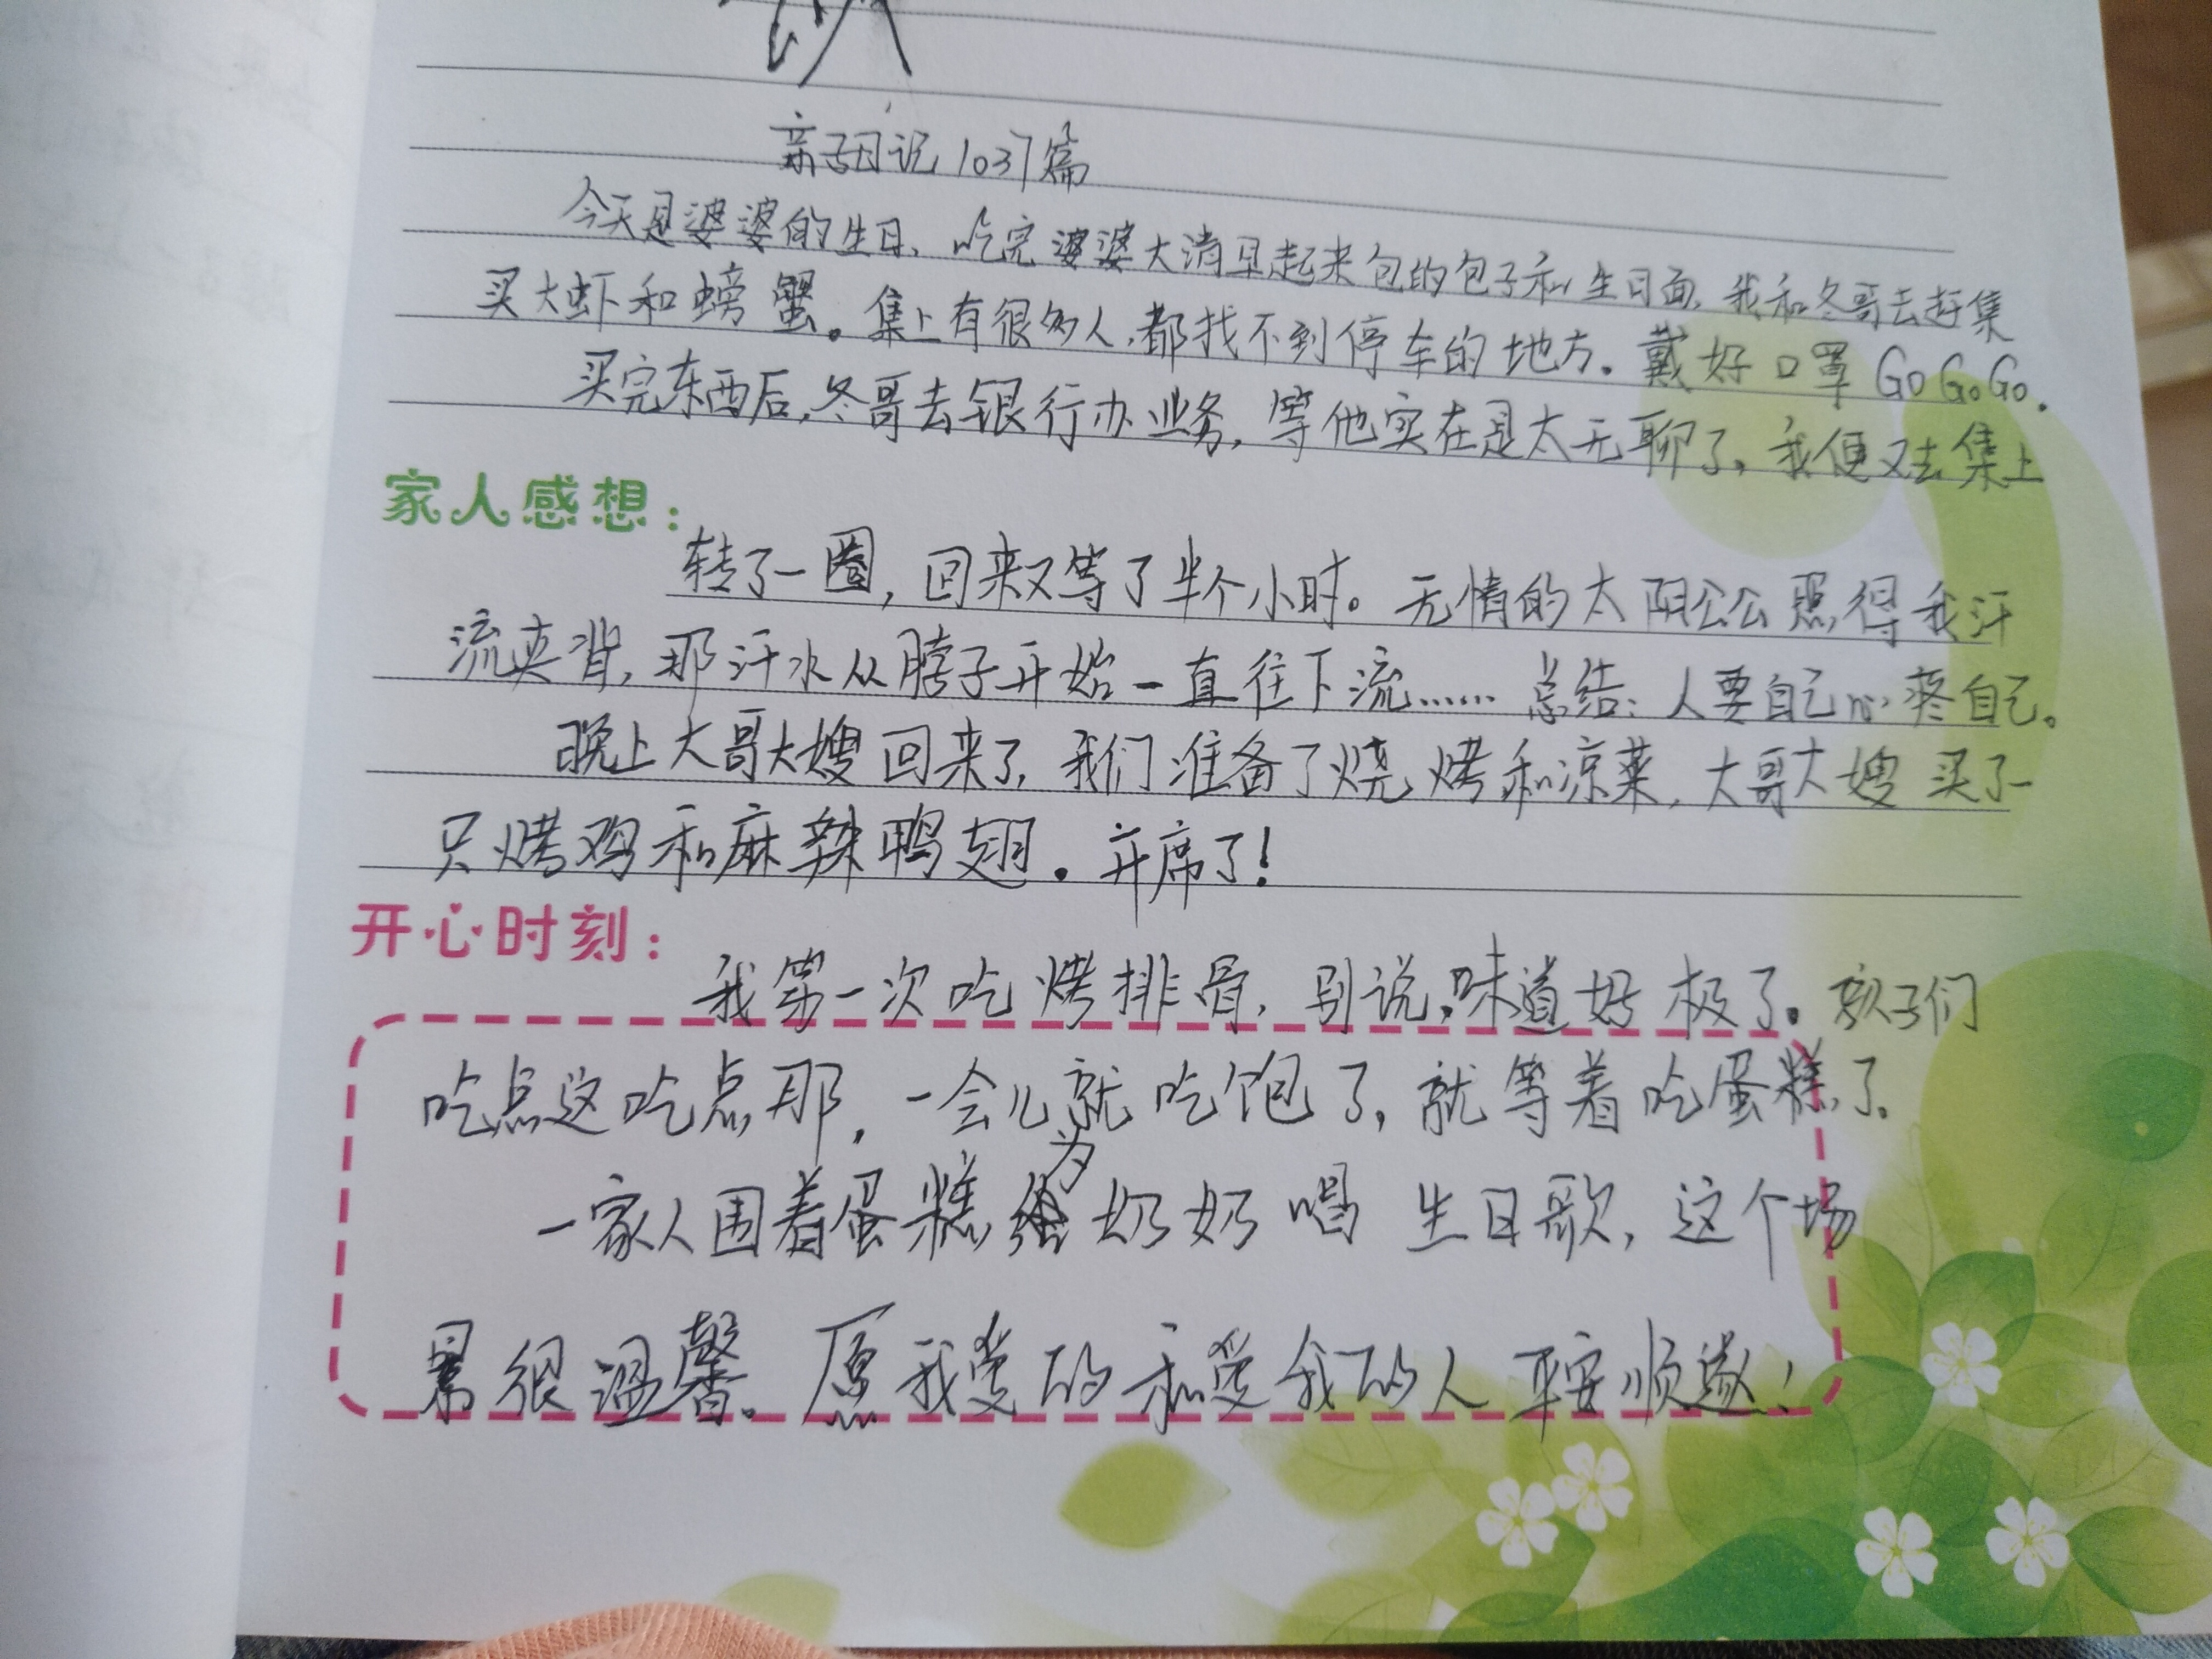 亲子日记1037篇
今天是婆婆的生日、吃完婆婆大清早起来包的包子和生日面,我和冬哥去赶集
买大虾和螃蟹。集上有很多人,都找不到停车的地方。戴好口罩GoGoGo.
买完东西后,冬哥去银行办业务,等他实在是太无聊了,我便又去集上
家人感想:
转了一圈,回来又等了半个小时。无情的太阳公公照得我汗
流夹背,那汗水从脖子开始一直往下流……总结:人要自己心疼自己。
晚上大哥大嫂回来了,我们准备了烧烤和凉菜,大哥大嫂买了一
只烤鸡和麻辣鸭翅。开席了!
开心时刻:
我第一次吃烤排骨,别说,味道好极了。孩子们
吃点这吃点那,一会儿就吃饱了,就等着吃蛋糕了.
一家人围着蛋糕为奶奶唱生日歌,这个场
景很温馨。愿我爱的和爱我的人平安顺遂!